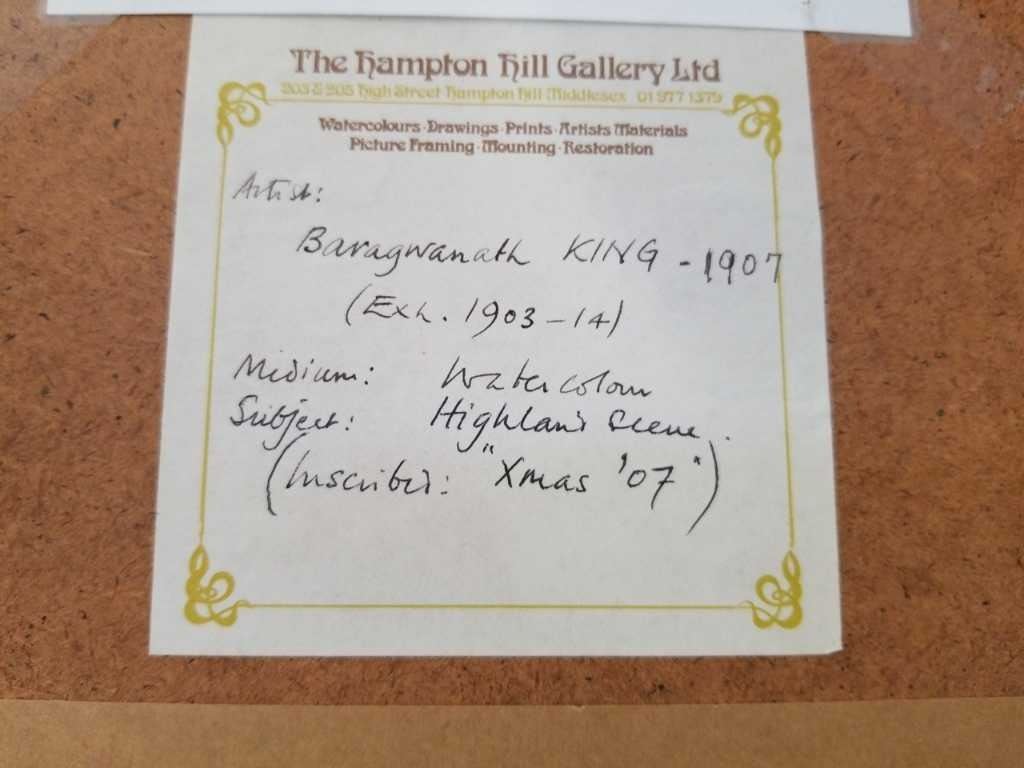 The Hampton Hill Gallery Ltd
203 & 205 High Street Hampton Hill Middlesex 01 977 1379
Watercolours · Drawings · Prints · Artists Materials
Picture Framing · Mounting · Restoration
Artist:
Baragwanath KING - 1907
(Exh. 1903-14)
Medium: Watercolour
Subject: Highland Scene.
(Inscribed: "Xmas '07")